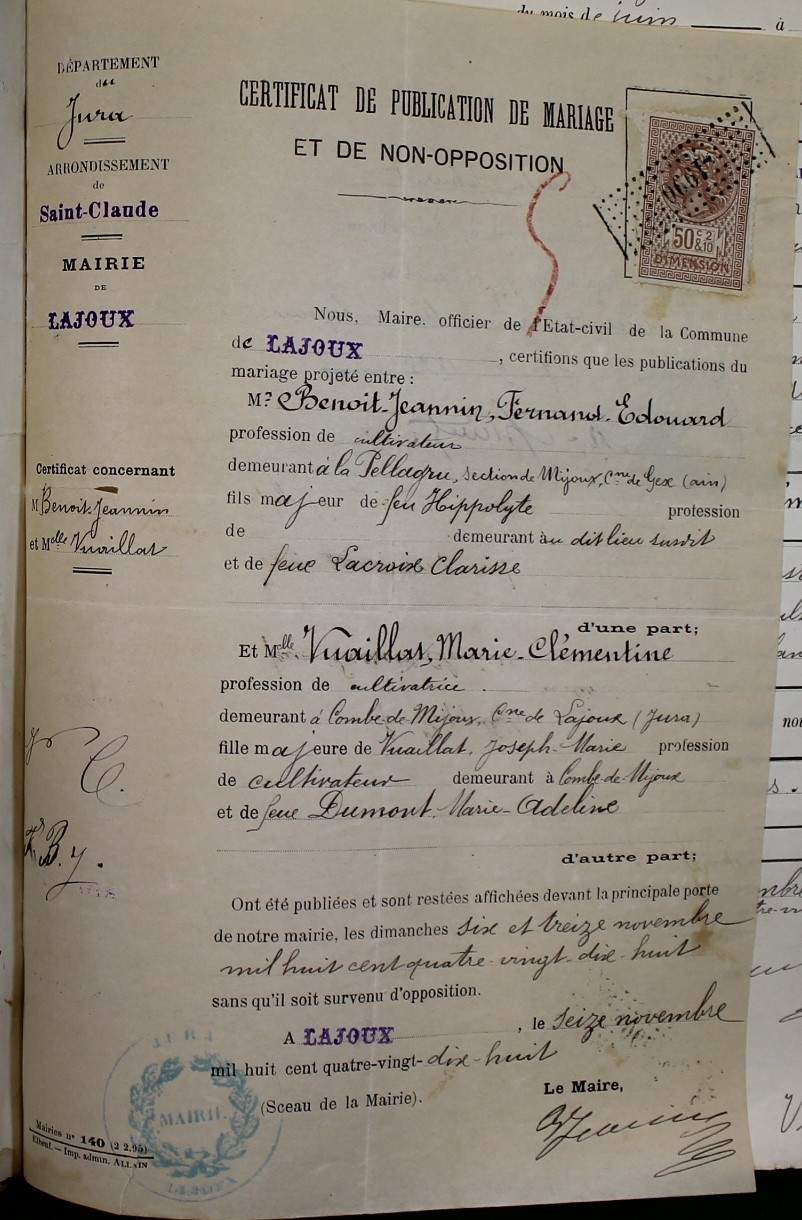 du mois de juin à
DÉPARTEMENT
du
Jura
ARRONDISSEMENT
de
Saint-Claude
MAIRIE
DE
LAJOUX
CERTIFICAT DE PUBLICATION DE MARIAGE
ET DE NON-OPPOSITION
50 c 2 & 10
DIMENSION
Nous, Maire, officier de l'Etat-civil de la Commune
de LAJOUX, certifions que les publications du
mariage projeté entre :
Mr Benoit-Jeannin, Fernand-Edouard
profession de cultivateur
demeurant à la Pellagru, section de Mijoux, Cne de Gex (ain)
fils majeur de feu Hippolyte profession
de demeurant au dit lieu susdit
et de feue Lacroix Clarisse
d'une part;
Et Melle Vuaillat, Marie-Clémentine
profession de cultivatrice
demeurant à Combe-de-Mijoux, Cne de Lajoux (Jura)
fille majeure de Vuaillat, Joseph-Marie profession
de cultivateur demeurant à Combe-de-Mijoux
et de feue Dumont-Marie-Adeline
d'autre part;
Ont été publiées et sont restées affichées devant la principale porte
de notre mairie, les dimanches six et treize novembre
mil huit cent quatre-vingt-dix-huit
sans qu'il soit survenu d'opposition.
A LAJOUX, le seize novembre
mil huit cent quatre-vingt-dix-huit
(Sceau de la Mairie).
Le Maire,
Certificat concernant
M Benoit-Jeannin
et Melle Vuaillat
C.
B.
JURA
MAIRIE
Mairies n° 140 (2 2.95)
Elbeuf. — Imp. admin. ALLAIN